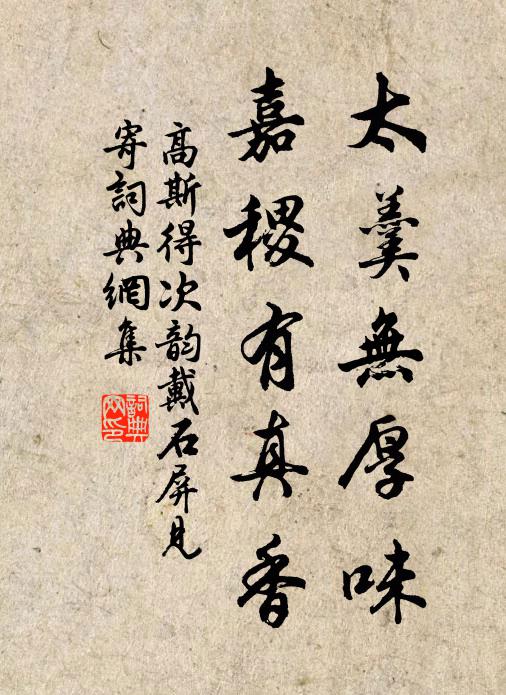 太羹無厚味
嘉稷有真香
高斯得次韵戴石屏見
寄詞典網集
詞典
网印